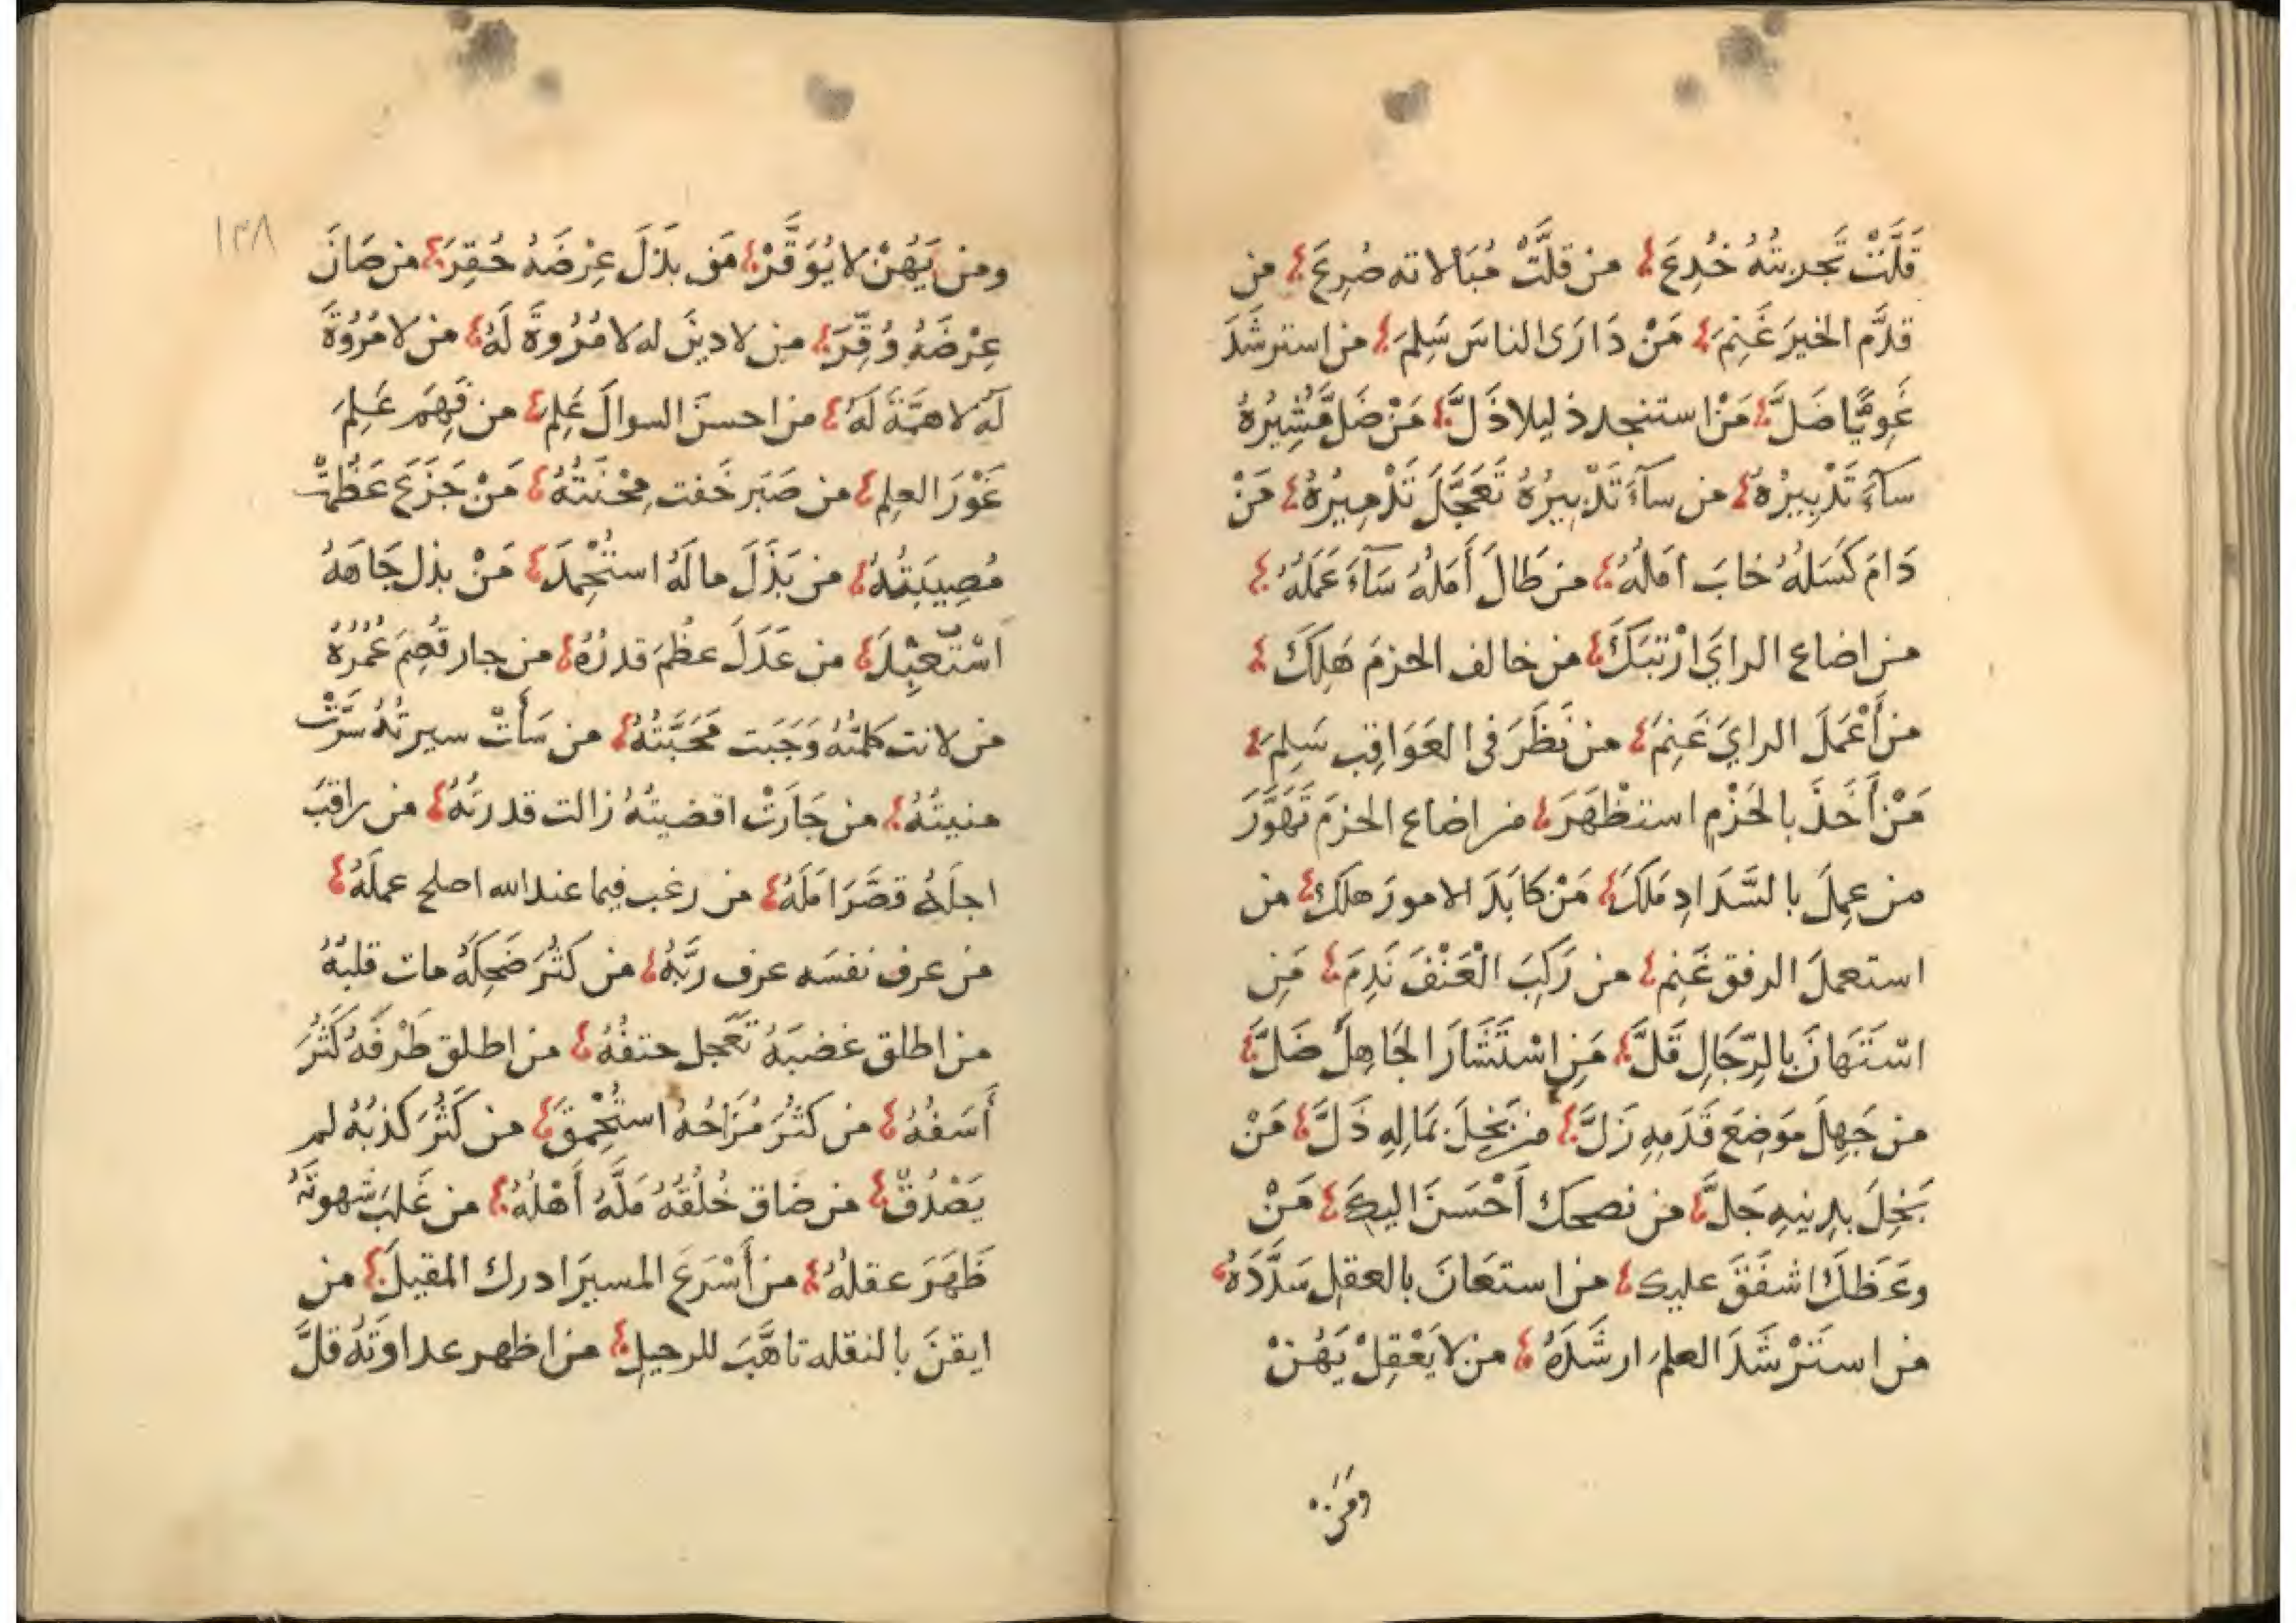 قَلَّتْ تَجربتُهُ خُدِعَ من قلَّتْ مُبَالاته صُرِعَ من
قدَّم الخيرَ غَنِمَ مَنْ دَارَى الناسَ سَلِمَ من استرشَدَ
غَوِيًّا ضَلَّ مَنْ استنجد ذليلا ذَلَّ مَنْ ضَلَّ مُشِيرُهُ
سآءَ تَدْبِيرُهُ من سآءَ تَدْبِيرُهُ تَعَجَّلَ تَدْمِيرُهُ مَنْ
دَامَ كَسَلهُ خابَ امَلُهُ من طَالَ أَمَلهُ سَآءَ عَمَلُهُ
من اضاع الرايَ ارْتَبَكَ من خالف الحزمَ هَلِكَ
من أَعْمَلَ الرايَ غَنِمَ من نَظَرَ فى العَوَاقِبِ سَلِمَ
مَنْ أَخَذَ بالحَزْمِ استظْهَرَ من اضاع الحزمَ تَهَوَّرَ
من عمِلَ بالسَّدَادِ مَلَكَ مَنْ كابَدَ الامورَ هلكَ من
استعملَ الرفق غَنِم من رَكِبَ الْعَنْفَ نَدِمَ مَنِ
اسْتَهَانَ بالرِّجَالِ قَلَّ مَنِ اسْتَشَارَ الجَاهِلَ ضَلَّ
من جَهِلَ مَوَضِعَ قَدَمِهِ زَلَّ من بَخِلَ بمَالِهِ ذَلَّ مَنْ
بَخِلَ بدِينِهِ جَلَّ من نصحك أَحْسَنَ اليكَ مَنْ
وعَظَكَ اشفَقَ عليك من استعَانَ بالعقلِ سَدَّدَهُ
من استَرْشَدَ العلمَ ارشَدَهُ من لا يَعْقِلْ يَهُنْ
ومَن
١٣٨
ومن يَهُنْ لا يُوَقَّرْ مَن بذَلَ عِرْضَهُ حُقِرَ من صَانَ
عِرْضَهُ وُقِّرَ من لا دينَ له لا مُرُوةَ لَهُ من لا مُرُوةَ
لَه لا همَّةَ لَهُ من احسنَ السوالَ عَلِمَ من فَهِمَ عَلِمَ
غَوْرَ العلِم من صَبَر خَفت مِحْنَتُهُ مَنْ جَزَعَ عَظُمتْ
مُصِيبَتُهُ من بَذَلَ مالَهُ استُحْمِدَ مَنْ بذل جَاهَهُ
اسْتُعْبِدَ من عَدَلَ عظُمَ قدرُهُ من جار قُصِمَ عُمُرُهُ
من لانت كلمتُهُ وَجَبت مَحَبَّتُهُ من سَأتْ سيرتُهُ سَرَّتْ
منيتُهُ من جَارَتْ اقضيتُهُ زالت قدرتهُ من راقبَ
اجلَهُ قصَّرَ امَلَهُ من رغب فيما عند الله اصلح عملَهُ
من عرف نفسَه عرف ربَّهُ من كثُرَ ضَحِكَهُ مات قلبُهُ
من اطلق غضبَهُ تَعَجل حتفُهُ من اطلق طَرْفَهُ كَثُرَ
أَسَفُهُ من كثُرَ مُزَاحُهُ استُحْمِقَ من كَثُرَ كذبُهُ لم
يَصْدُقْ من ضَاق خُلُقُهُ مَلَّهُ أَهْلُهُ من غَلَبَ شهوتَهُ
ظَهَرَ عقلهُ من أَسْرَعَ المسيرَ ادرك المقيلَ من
ايقنَ بالنقله تاهَّبَ للرحيلِ من اظهر عداوتَهُ قلَّ